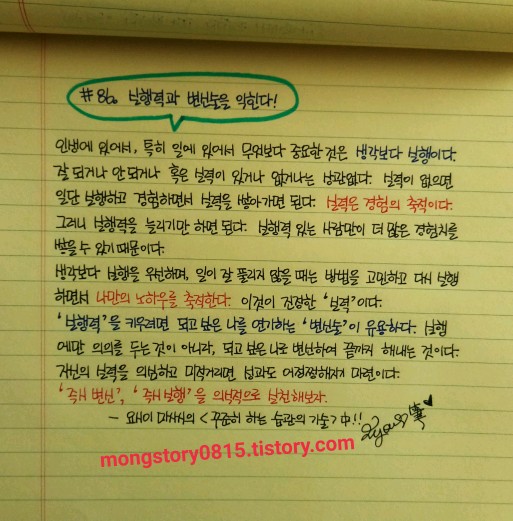 #86. 실행력과 변신술을 익힌다!
인생에 있어서, 특히 일에 있어서 무엇보다 중요한 것은 생각보다 실행이다.
잘 되거나 안 되거나 혹은 실력이 있거나 없거나는 상관없다. 실력이 없으면
일단 실행하고 경험하면서 실력을 쌓아가면 된다. 실력은 경험의 축적이다.
그러니 실행력을 늘리기만 하면 된다. 실행력 있는 사람만이 더 많은 경험치를
쌓을 수 있기 때문이다.
생각보다 실행을 우선하며, 일이 잘 풀리지 않을 때는 방법을 고민하고 다시 실행
하면서 나만의 노하우를 축적한다. 이것이 진정한 '실력'이다.
'실행력'을 키우려면 되고 싶은 나를 연기하는 '변신술'이 유용하다. 실행
에만 의의를 두는 것이 아니라, 되고 싶은 나로 변신하여 끝까지 해내는 것이다.
자신의 실력을 의심하고 미적거리면 성과도 어정쩡해지기 마련이다.
'즉시 변신', '즉시 실행'을 의식적으로 실천해보자.
- 요시이 마사시의 <꾸준히 하는 습관의 기술> 中!!
mongstory0815.tistory.com